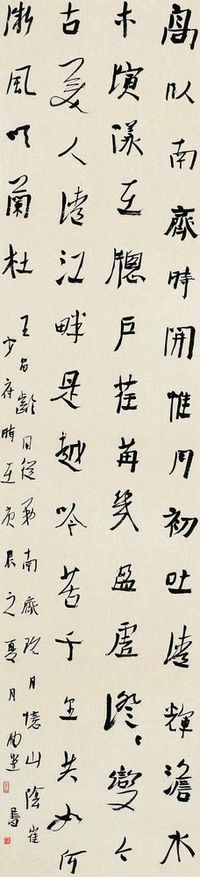 高臥南齋時開帷月初吐清輝澹水
木演漾在牕戶荏苒幾盈虛澄〻變今
古美人清江畔是越吟苦千里共如何
漸風吹蘭杜
王昌齡同從弟南齋玩月憶山陰崔
少府時在庚辰之夏月書